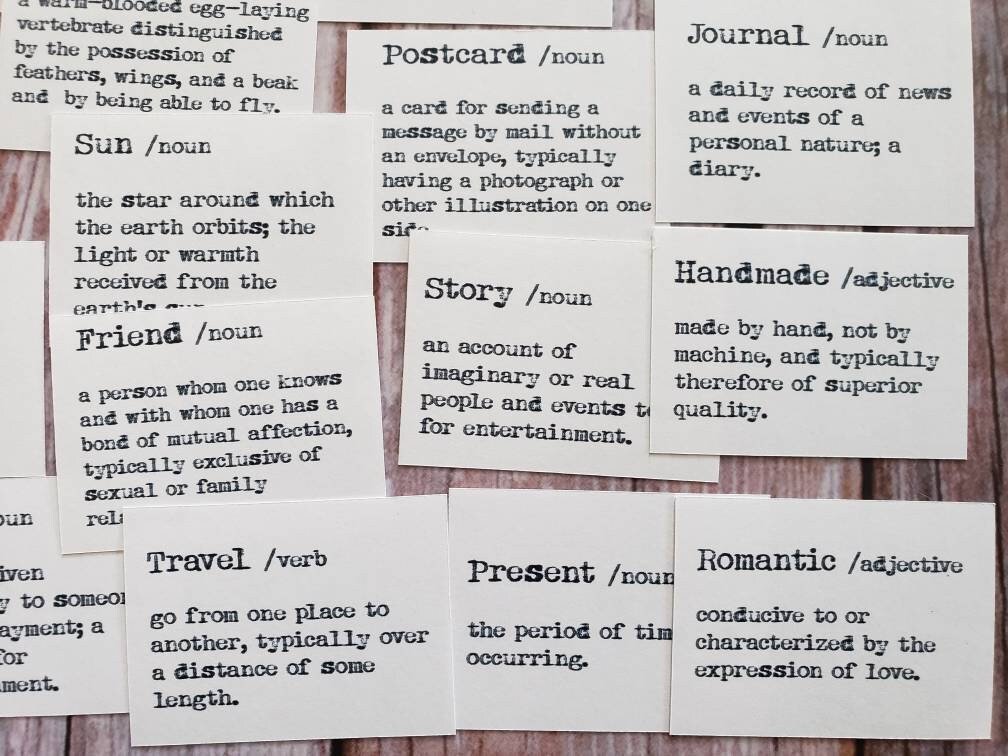 a warm-blooded egg-laying
vertebrate distinguished
by the possession of
feathers, wings, and a beak
and by being able to fly.
Postcard /noun
a card for sending a
message by mail without
an envelope, typically
having a photograph or
other illustration on one
Journal /noun
a daily record of news
and events of a
personal nature; a
diary.
Sun /noun
the star around which
the earth orbits; the
light or warmth
received from the
earth's
Story /noun
an account of
imaginary or real
people and events
for entertainment.
Handmade /adjective
made by hand, not by
machine, and typically
therefore of superior
quality.
Friend /noun
a person whom one knows
and with whom one has a
bond of mutual affection,
typically exclusive of
sexual or family
to
for
Travel /verb
go from one place to
another, typically over
a distance of some
length.
Present /noun
the period of
occurring.
Romantic /adjective
conducive to or
characterized by the
expression of love.